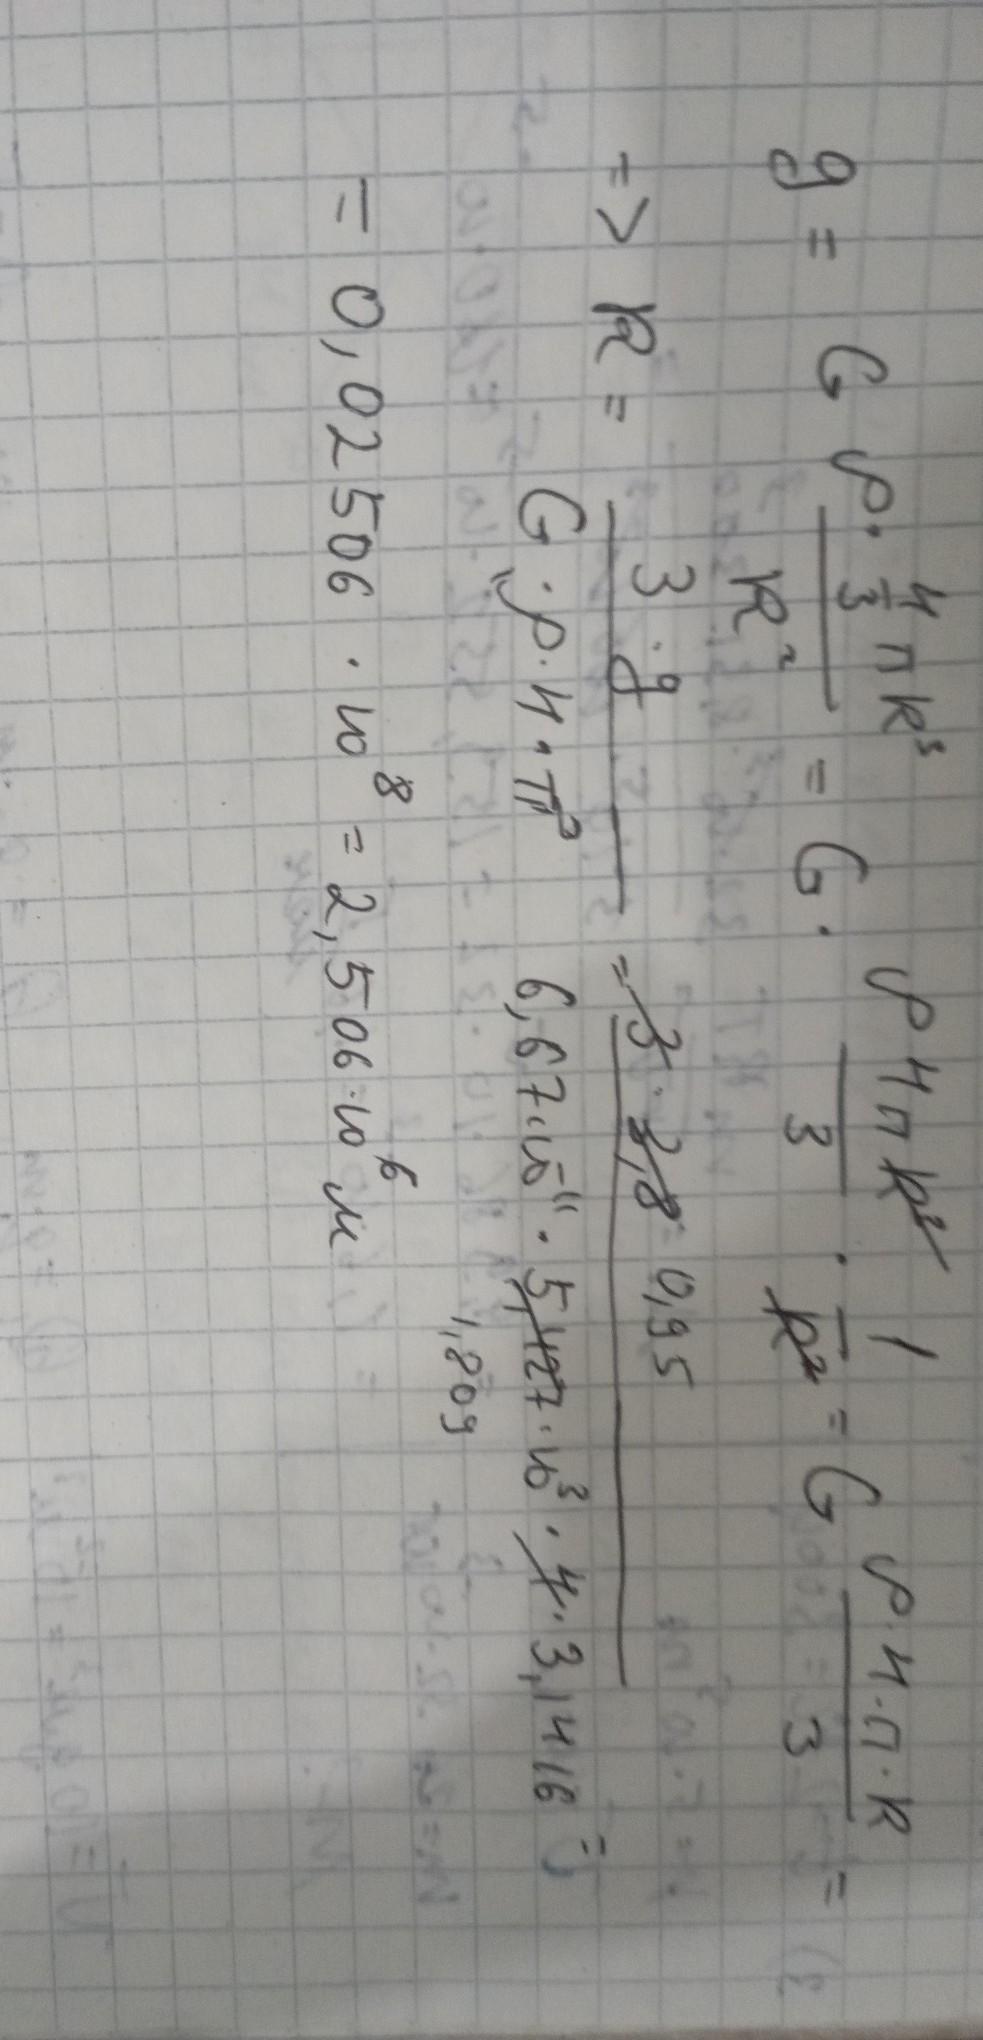 g = G (ρ · 4/3 π R³)/R² = G · (ρ 4 π R³)/3 · 1/R² = G (ρ · 4 · π · R)/3 =
=> R = (3 · g)/(G · ρ · 4 · π) = (3 · 3,8 = 0,95)/(6,67 · 10⁻¹¹ · 5,427 · 10³ · 4 · 3,1416) =
1,809
= 0,02506 · 10⁸ = 2,506 · 10⁶ м